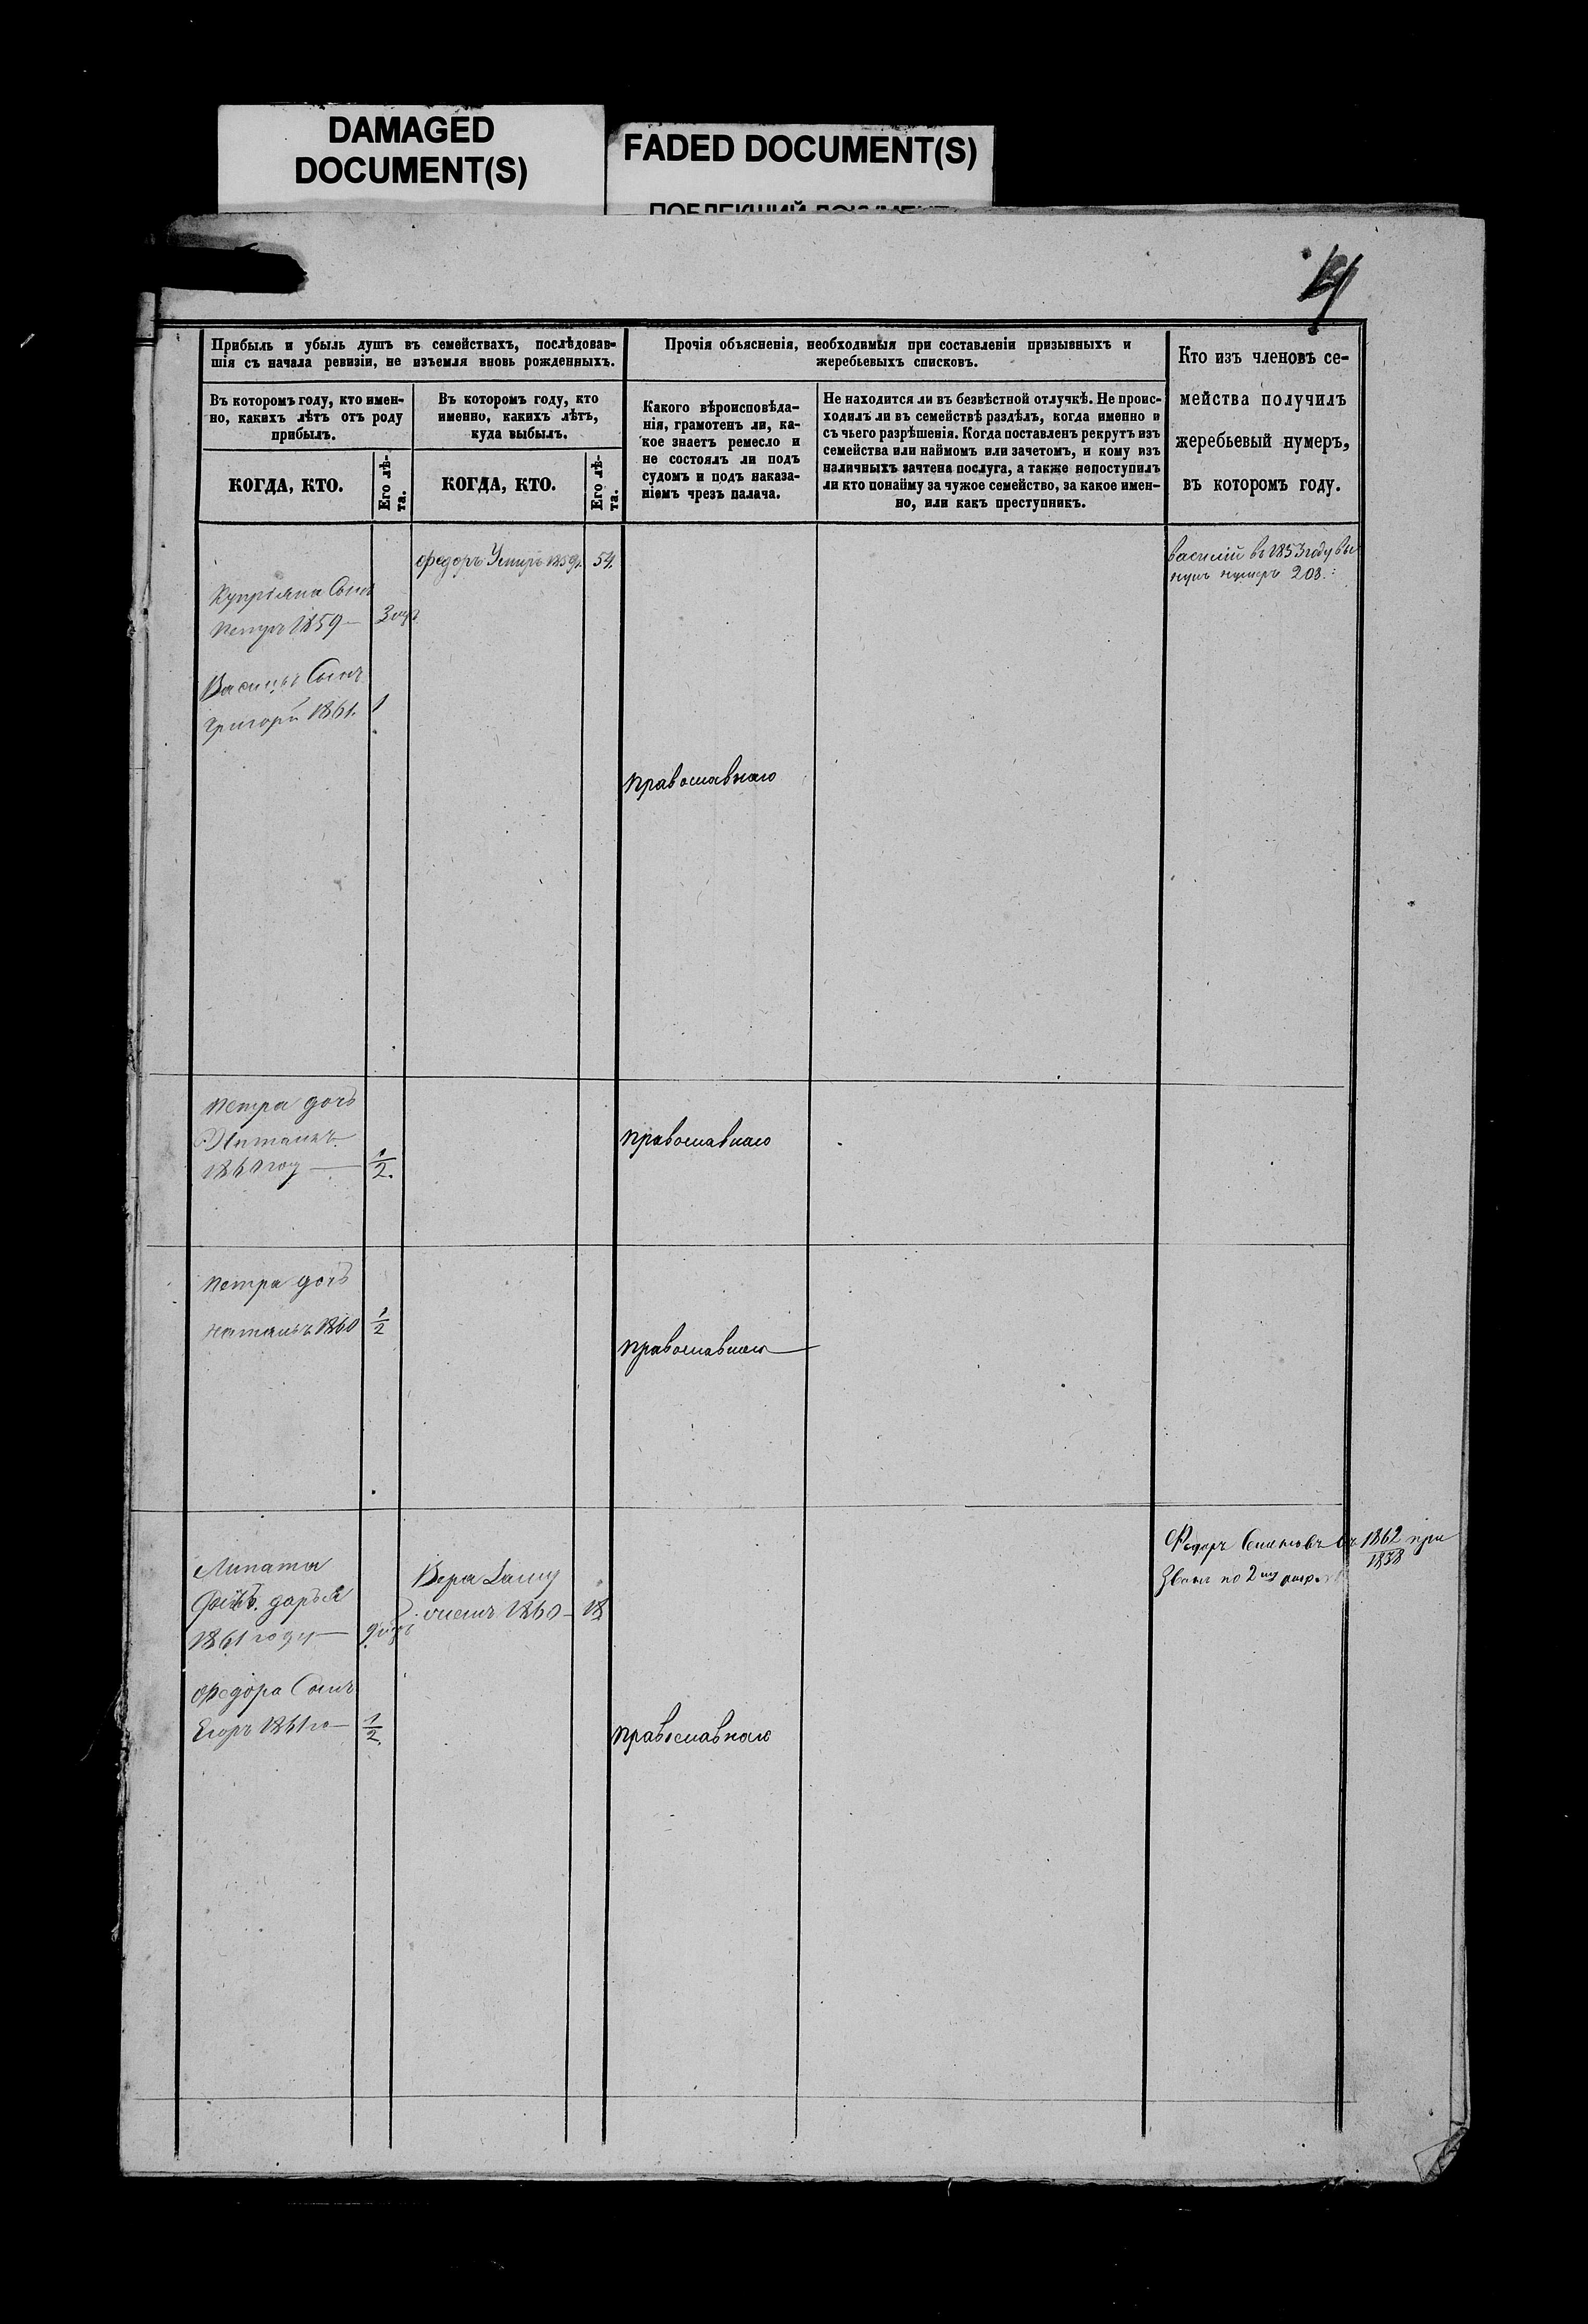 DAMAGED
DOCUMENT(S)
FADED DOCUMENT(S)
Прибыль и убыль душъ въ семействахъ, послѣдовав-
шія съ начала ревизіи, не изъемля вновь рожденныхъ.
Въ которомъ году, кто имен-
но, какихъ лѣтъ отъ роду
прибылъ.
КОГДА, КТО.
Его лѣ-
та.
Въ которомъ году, кто
именно, какихъ лѣтъ,
куда выбылъ.
КОГДА, КТО.
Его лѣ-
та.
Прочія объясненія, необходимыя при составленіи призывныхъ и
жеребьевыхъ списковъ.
Какого вѣроисповѣда-
нія, грамотенъ ли, ка-
кое знаетъ ремесло и
не состоялъ ли подъ
судомъ и подъ наказа-
ніемъ чрезъ палача.
Не находится ли въ безвѣстной отлучкѣ. Не проис-
ходилъ ли въ семействѣ раздѣлъ, когда именно и
съ чьего разрѣшенія. Когда поставленъ рекрутъ изъ
семейства или наймомъ или зачетомъ, и кому изъ
наличныхъ зачтена послуга, а также непоступилъ
ли кто понайму за чужое семейство, за какое имен-
но, или какъ преступникъ.
Кто изъ членовъ се-
мейства получилъ
жеребьевый нумеръ,
въ которомъ году.
Федоръ Умиръ 1859г. 54.
василій въ 1853 году вы
нулъ нумеръ 208.
Купріяна Сынъ
Петръ 1859 —
Сынъ
Григорій 1861. 1
православнаго
Петра дочь
1860 год — 1/2.
православнаго
Петра дочь
1860 1/2
православнаго
Федоръ въ 1862 при
1838
званъ по 2му разр.
Липата
дочь дарья
1861 году —
Вера
1860 — 18
Федора Сынъ
Егоръ 1861 го — 1/2.
православнаго